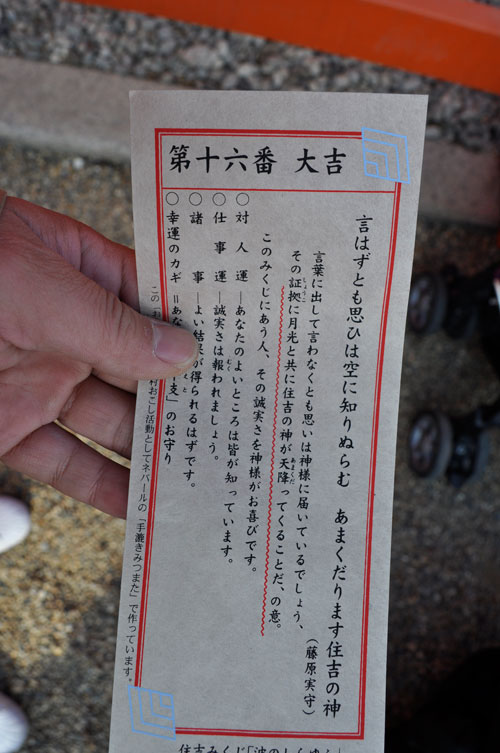 第十六番 大吉
言はずとも思ひは空に知りぬらむ あまくだります住吉の神
(藤原実守)
言葉に出して言わなくとも思いは神様に届いているでしょう、
その証拠に月光と共に住吉の神が天降ってくることだ、の意。
このみくじにあう人、その誠実さを神様がお喜びです。
○対人運―あなたのよいところは皆が知っています。
○仕事運―誠実さは報われましょう。
○諸事―よい結果が得られるはずです。
○幸運のカギ=あな 支」のお守り
この 村おこし活動としてネパールの「手漉きみつまた」で作っています。
住吉みくじ「波のしらゆふ」